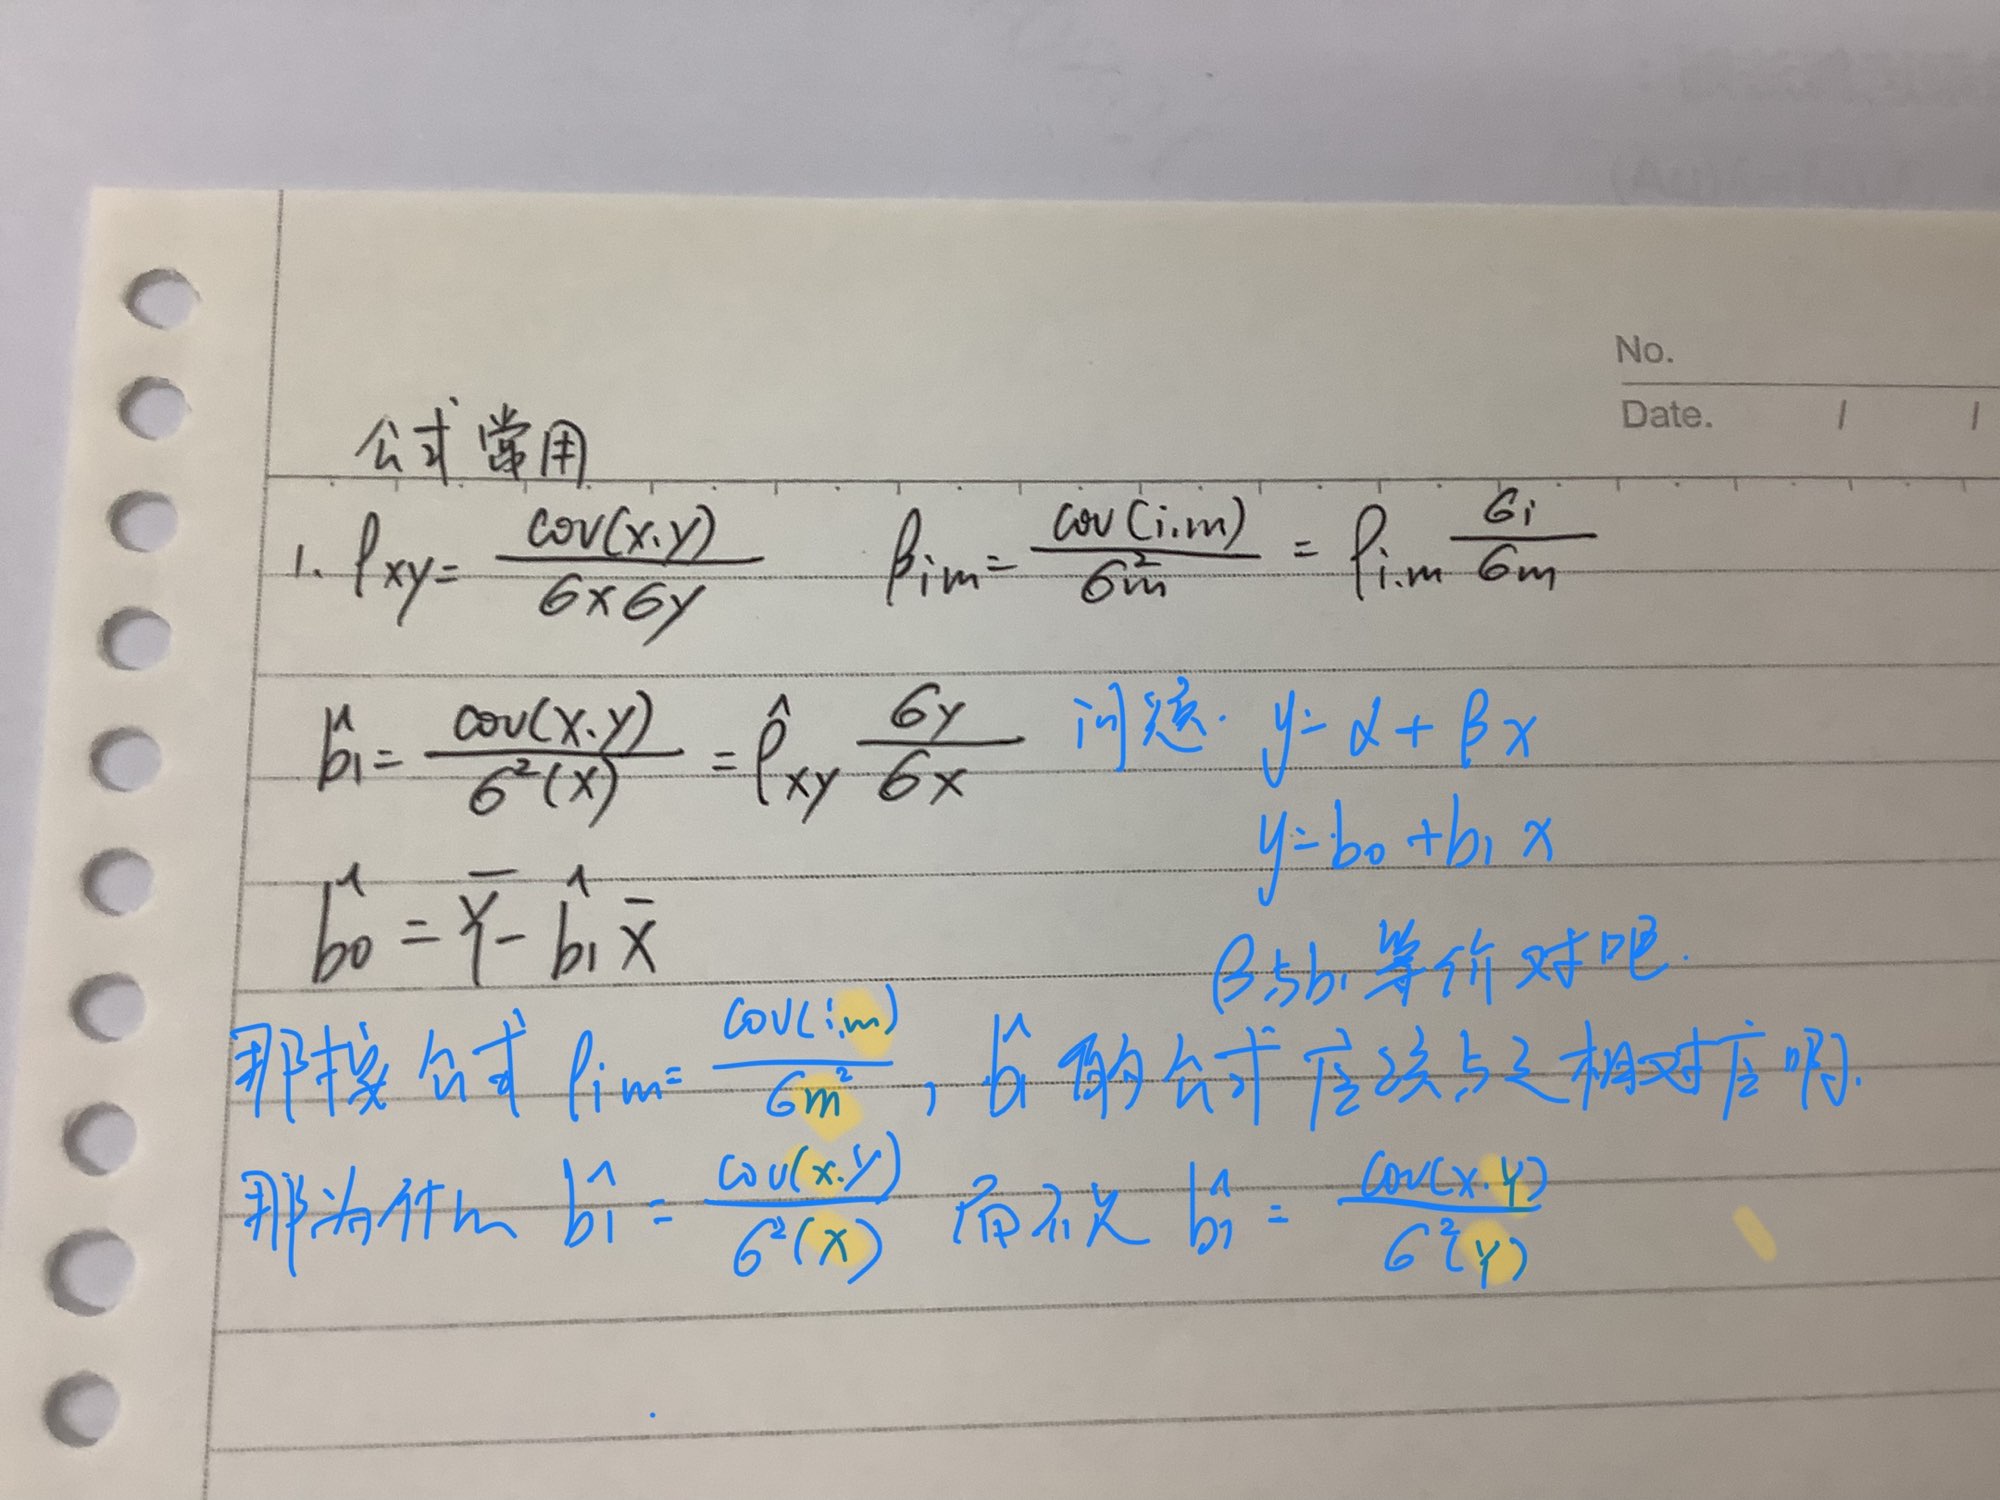 No.
Date. / /
公式常用
1. ρxy = cov(x.y) / σxσy βim = cov(i.m) / σ²m = ρi.m σi / σm
b̂1 = cov(x.y) / σ²(x) = ρ̂xy σy / σx 问题. y = α + βx
y = b0 + b1 x
b̂0 = Ȳ - b̂1 x̄
β与b1等价对吧.
那按公式 ρim = cov(i.m) / σm², b̂1 的公式应该与之相对应啊.
那为什么 b̂1 = cov(x.y) / σ²(x) 而不是 b̂1 = cov(x.y) / σ²(y)